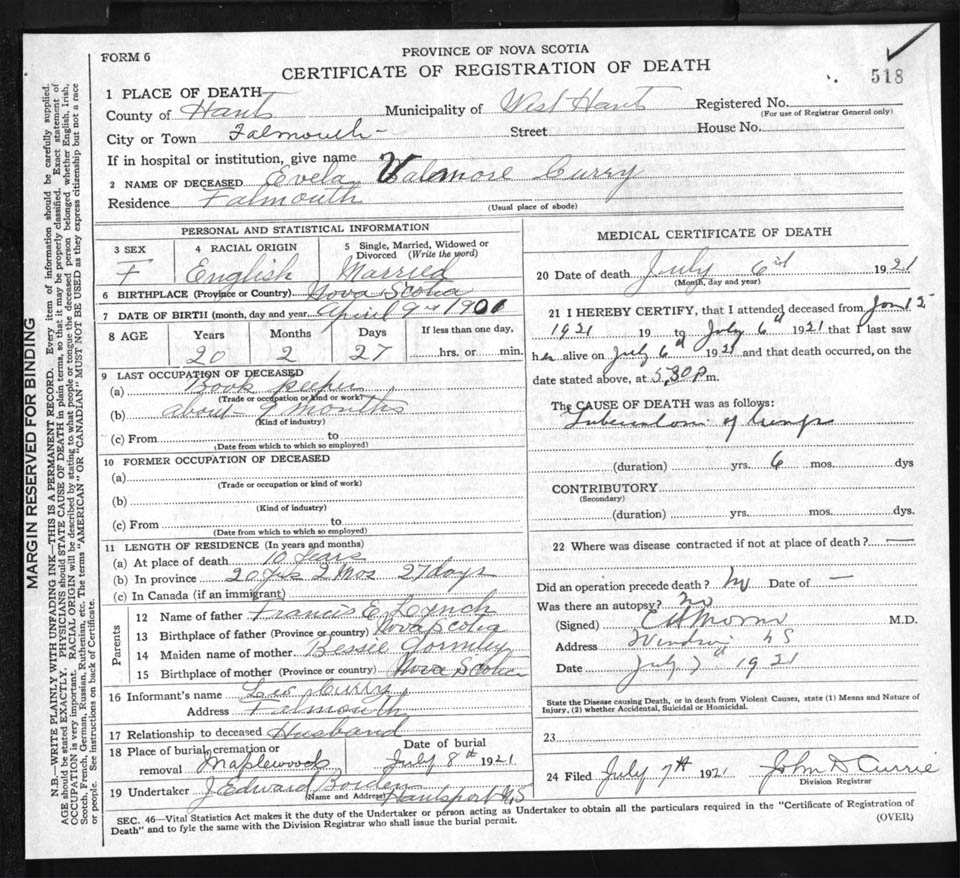 FORM 6
PROVINCE OF NOVA SCOTIA
CERTIFICATE OF REGISTRATION OF DEATH
518
1 PLACE OF DEATH
County of Hants Municipality of West Hants Registered No.
(For use of Registrar General only)
City or Town Falmouth Street House No.
If in hospital or institution, give name
2 NAME OF DECEASED Evela Valemore Curry
Residence Falmouth
(Usual place of abode)
PERSONAL AND STATISTICAL INFORMATION
3 SEX
F
4 RACIAL ORIGIN
English
5 Single, Married, Widowed or
Divorced (Write the word)
Married
6 BIRTHPLACE (Province or Country) Nova Scotia
7 DATE OF BIRTH (month, day and year April 9th 1901
8 AGE Years Months Days If less than one day,
20 2 27 hrs. or min.
9 LAST OCCUPATION OF DECEASED
(a) Book keeper
(Trade or occupation or kind of work)
(b) about 9 months
(Kind of industry)
(c) From to
(Date from which to which so employed)
10 FORMER OCCUPATION OF DECEASED
(a)
(Trade or occupation or kind of work)
(b)
(Kind of industry)
(c) From to
(Date from which to which so employed)
11 LENGTH OF RESIDENCE (In years and months)
(a) At place of death 10 years
(b) In province 20 yrs 2 mos 27 days
(c) In Canada (if an immigrant)
Parents
12 Name of father Francis E Lynch
13 Birthplace of father (Province or country) Nova Scotia
14 Maiden name of mother Bessie Gormley
15 Birthplace of mother (Province or country) Nova Scotia
16 Informant's name Leo Curry
Address Falmouth
17 Relationship to deceased Husband
18 Place of burial, cremation or
removal Maplewood
Date of burial
July 8th 1921
19 Undertaker J. Edward Borden
(Name and Address) Hantsport N.S
MEDICAL CERTIFICATE OF DEATH
20 Date of death July 6th 1921
(Month, day and year)
21 I HEREBY CERTIFY, that I attended deceased from
1921 19 to July 6th 1921 that I last saw
her alive on July 6th 1921 and that death occurred, on the
date stated above, at 5,30 P m.
The CAUSE OF DEATH was as follows:
Tuberculosis of lungs
(duration) yrs. 6 mos. dys
CONTRIBUTORY
(Secondary)
(duration) yrs. mos. dys.
22 Where was disease contracted if not at place of death? —
Did an operation precede death? No Date of —
Was there an autopsy? No
(Signed) M.D.
Address Windsor N S
Date July 7th 1921
State the Disease causing Death, or in death from Violent Causes, state (1) Means and Nature of
Injury, (2) whether Accidental, Suicidal or Homicidal.
23
24 Filed July 7th 1921 John D Currie
Division Registrar
SEC. 46—Vital Statistics Act makes it the duty of the Undertaker or person acting as Undertaker to obtain all the particulars required in the "Certificate of Registration of
Death" and to fyle the same with the Division Registrar who shall issue the burial permit.
(OVER)
MARGIN RESERVED FOR BINDING
N.B.—WRITE PLAINLY WITH UNFADING INK—THIS IS A PERMANENT RECORD. Every item of information should be carefully supplied.
AGE should be stated EXACTLY. PHYSICIANS should STATE CAUSE OF DEATH in plain terms, so that it may be properly classified. Exact statement of
OCCUPATION is very important. RACIAL ORIGIN will be described by stating to what people or tongue the deceased person belonged whether English, Irish,
Scotch, French, German, Russian, Ruthenian, etc. The terms "AMERICAN" OR "CANADIAN" MUST NOT BE USED as they express citizenship but not a race
or people. See instructions on back of Certificate.